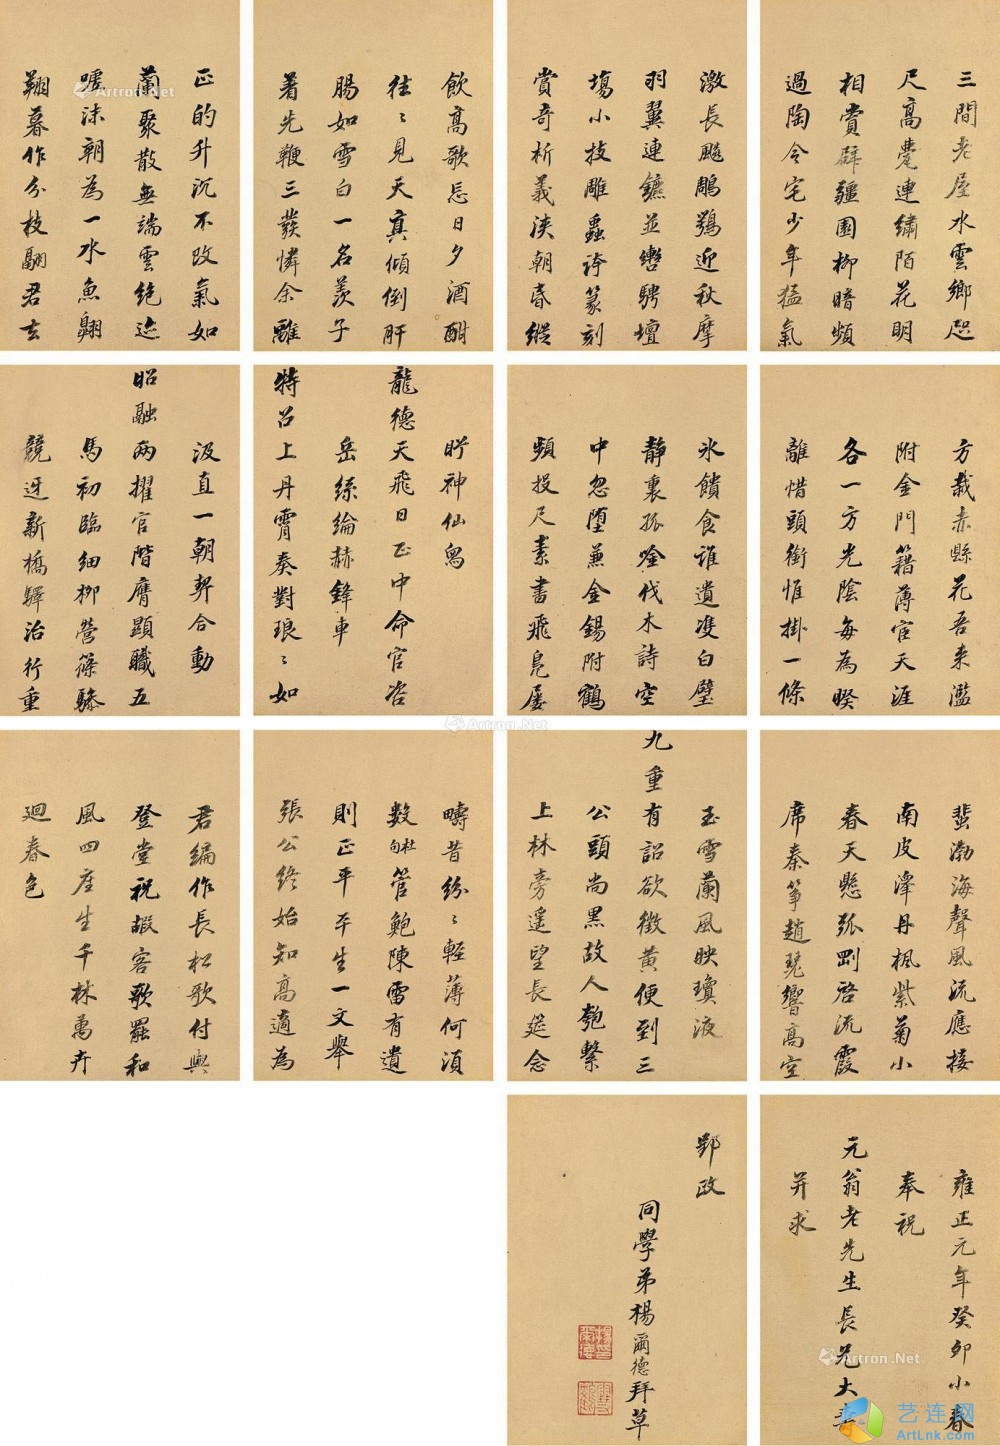 三間老屋水雲鄉咫
尺高甍連繡陌花明
相賞辟疆園柳暗頻
過陶令宅少年猛氣
激長飈鵰鶚迎秋摩
羽翼連鑣並轡騁壇
場小技雕蟲詩篆刻
賞奇析義浹朝昏縱
飲高歌忘日夕酒酣
往〻見天真傾倒肝
腸如雪白一名羨子
著先鞭三發憐余離
正的升沉不改氣如
蘭聚散無端雲絕迹
躍沫朝為一水魚翱
翔暮作分枝翮君去
方栽赤縣花吾来濫
附金門籍薄宦天涯
各一方光陰每為暌
離惜頭銜惟掛一條
氷饋食誰遺雙白璧
静裏孤唫伐木詩空
中忽墮兼金錫附鶴
頻投尺素書飛鳧屢
盻神仙舄
龍德天飛日正中命官咨
岳絲綸赫鋒車
特召上丹霄奏對琅〻如
汲直一朝契合動
昭融两擢官階膺顯職五
馬初臨細柳營篠驂
競迓新橋驛治行重
蜚渤海聲風流應接
南皮澤丹楓紫菊小
春天懸弧剛啓流霞
席秦筝趙瑟響高空
玉雪蘭風映瓊液
九重有詔欲徵黄便到三
公頭尚黑故人匏繫
上林旁遥望長筵念
疇昔紛〻輕薄何須
數杜句管鮑陳雷有遺
則正平平生一文舉
張公終始知高適為
君編作長松歌付與
登堂祝嘏客歌罷和
風四座生千林萬卉
廻春色
雍正元年癸卯小春
奉祝
元翁老先生長兄大壽
并求
郢政
同學弟楊爾德拜草
Artron.Net
Artron.Net
Artron.Net
艺连网
ArtLnk.com